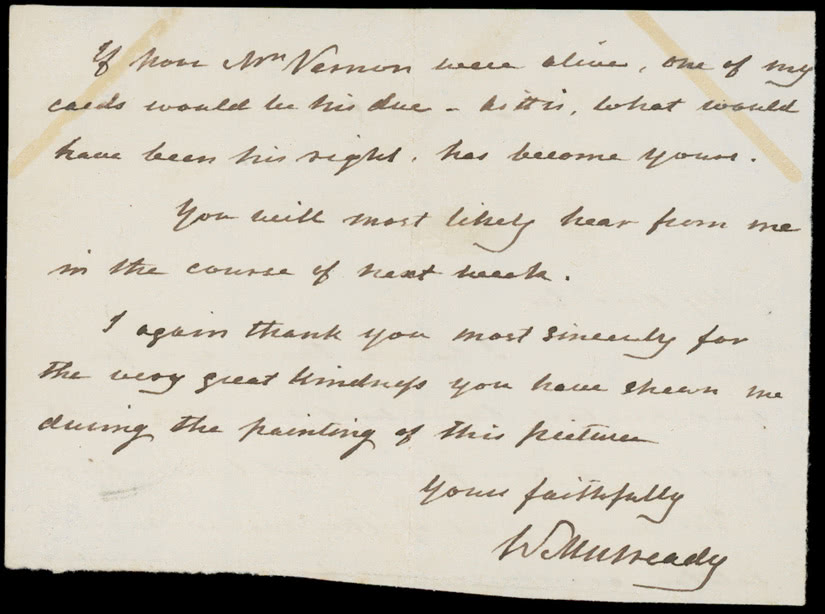 If poor Mr Vernon were alive, one of my
cards would be his due – as it is, what would
have been his right, has become yours.
You will most likely hear from me
in the course of next week.
I again thank you most sincerely for
the very great kindness you have shewn me
during the painting of this picture
Yours faithfully
W Mulready